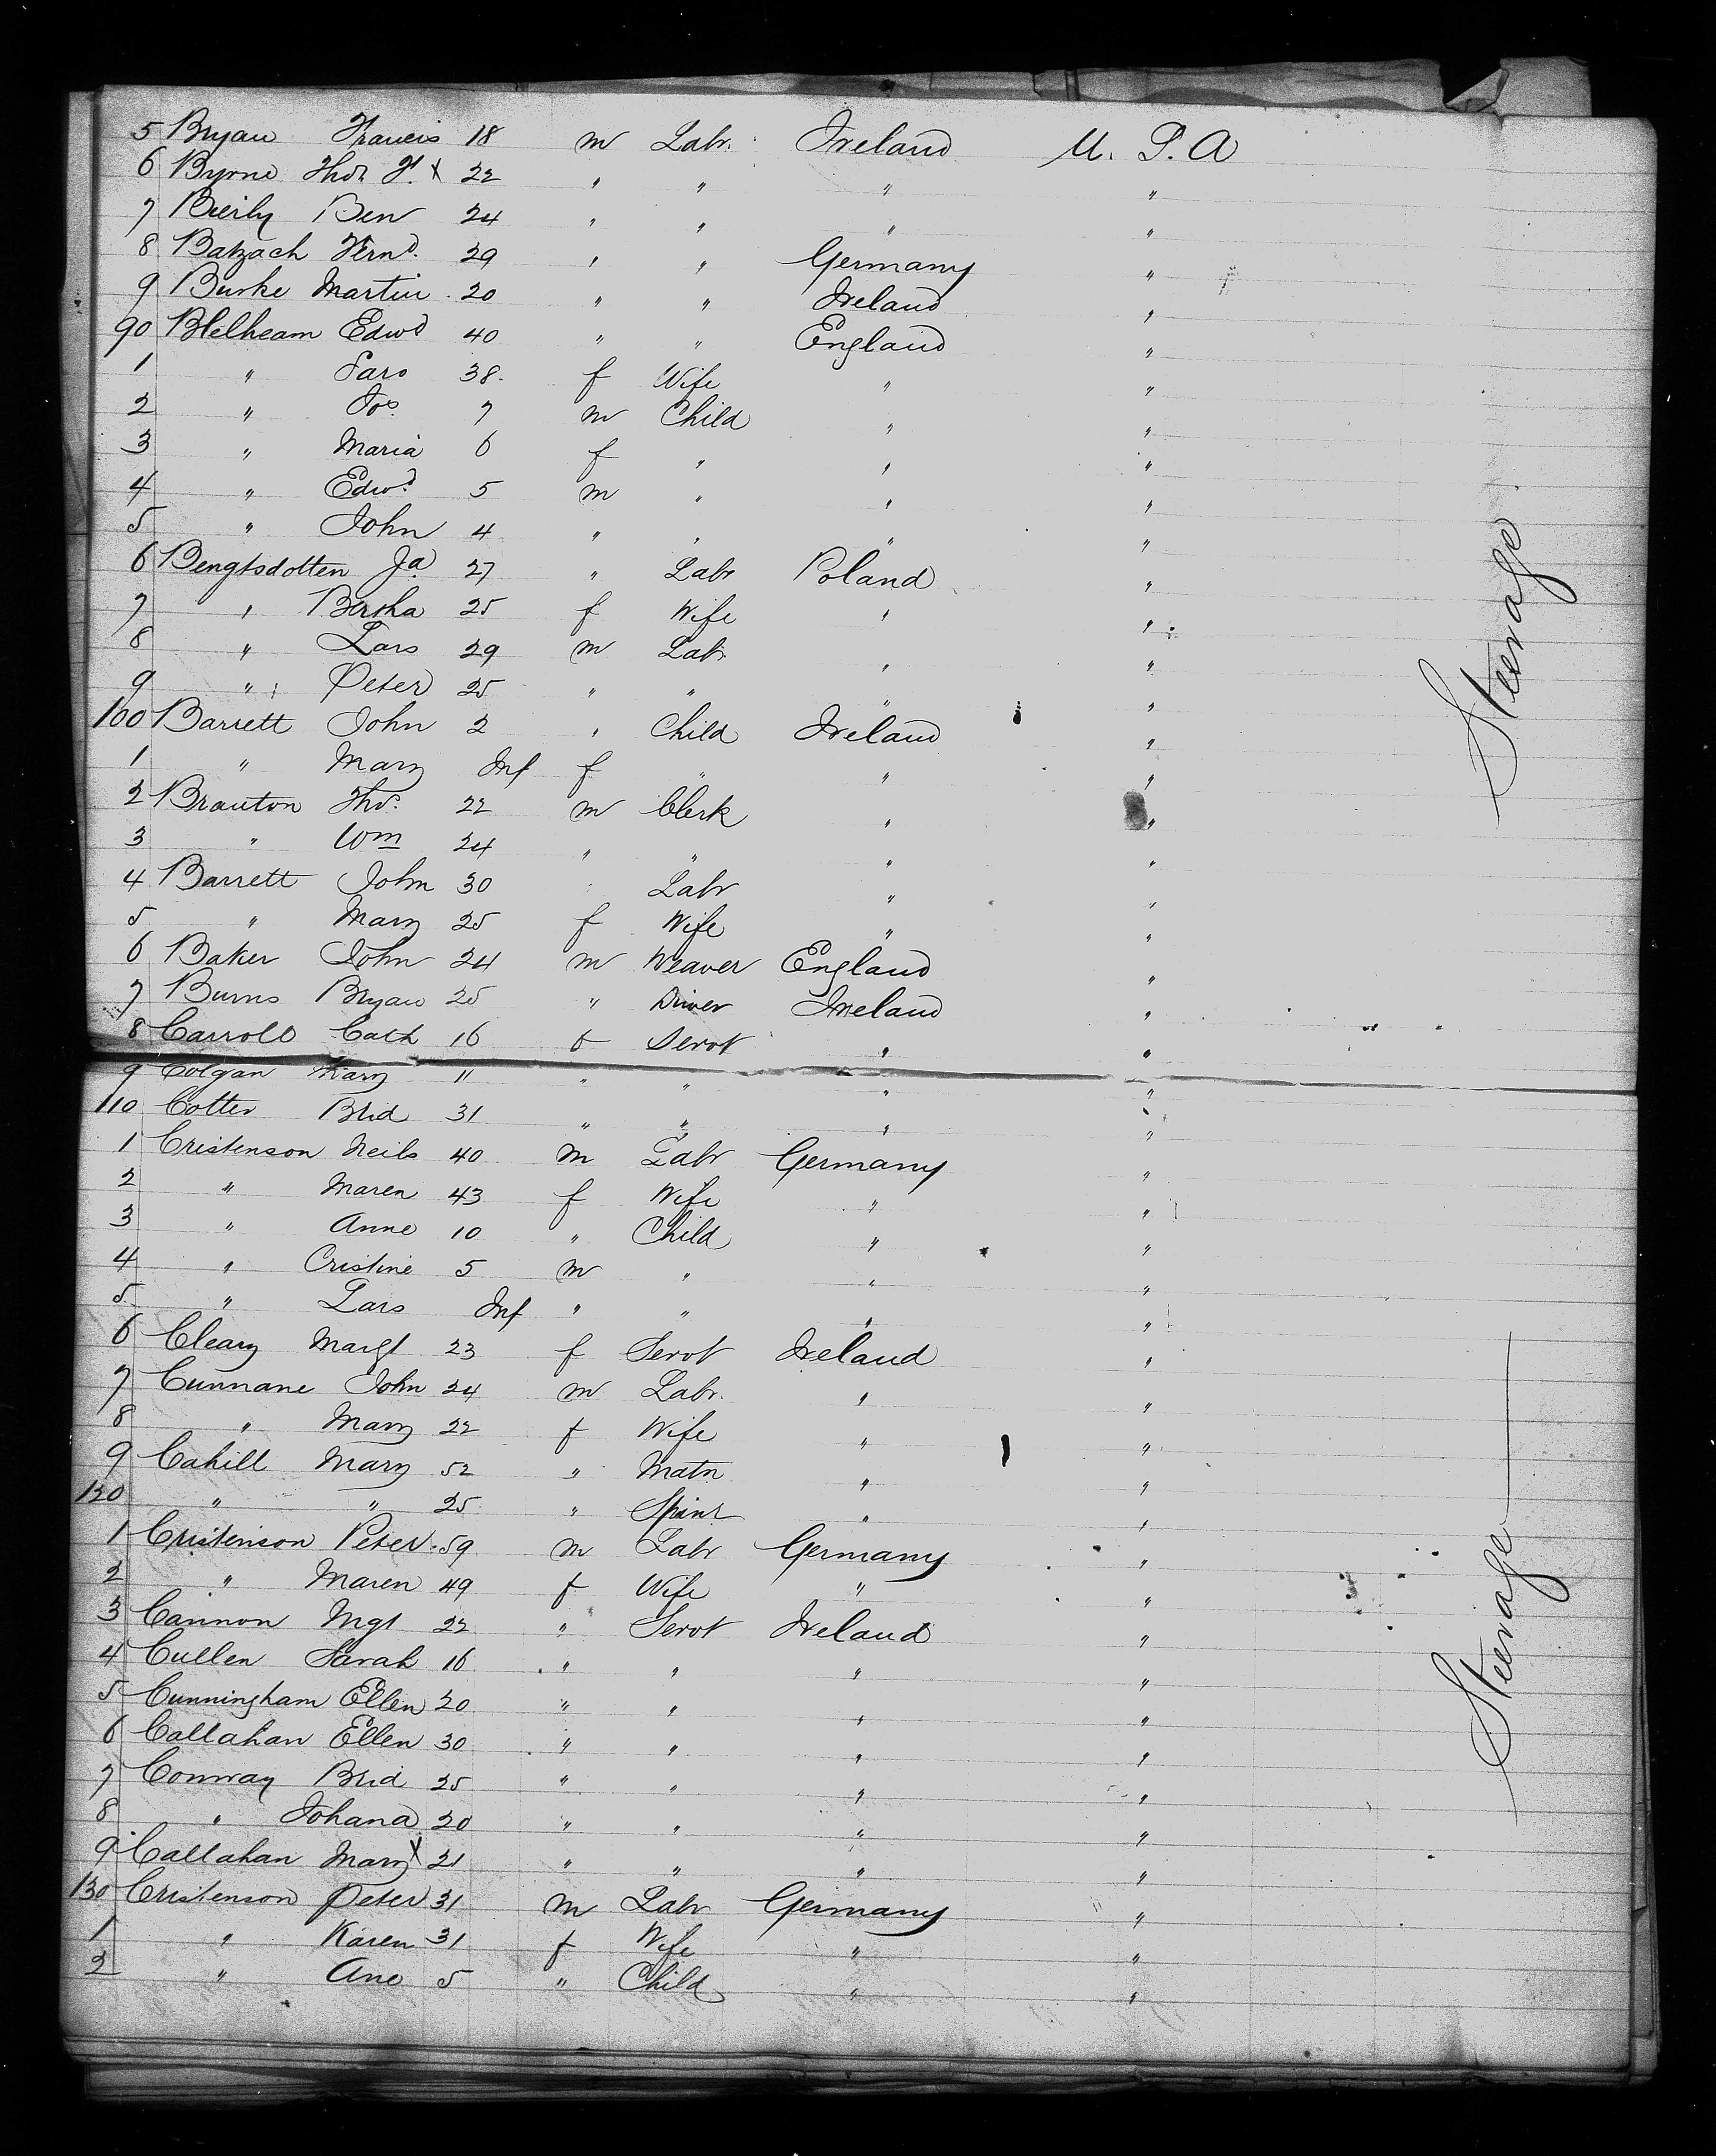 5 Bryan Francis 18 m Labr. Ireland U. S. A
6 Byrne Thos F. x 22 " " " "
7 Bierly Ben 24 " " " "
8 Batzach Fernd. 29 " " Germany "
9 Burke Martin 20 " " Ireland "
90 Blelheam Edwd 40 " " England "
1 " Sara 38 f Wife " "
2 " Jos. 7 m Child " "
3 " Maria 6 f " " "
4 " Edwd. 5 m " " "
5 " John 4 " " " "
6 Bengtsdotten Ja. 27 " Labr Poland "
7 " Bertha 25 f Wife " "
8 " Lars 29 m Labr " "
9 " Peter 25 " " " "
100 Barrett John 2 " Child Ireland "
1 " Mary Inf f " " "
2 Brauton Tho. 22 m Clerk " "
3 " Wm 24 " " " "
4 Barrett John 30 " Labr " "
5 " Mary 25 f Wife " "
6 Baker John 24 m Weaver England "
7 Burns Bryan 25 " Driver Ireland "
8 Carroll Cath 16 f Servt " "
9 Colgan Mary 11 " " " "
110 Cotter Brid 31 " " " "
1 Cristenson Neils 40 m Labr Germany "
2 " Maren 43 f Wife " "
3 " Anne 10 " Child " "
4 " Cristine 5 m " " "
5 " Lars Inf " " " "
6 Cleary Margt 23 f Servt Ireland "
7 Cunnane John 24 m Labr. " "
8 " Mary 22 f Wife " "
9 Cahill Mary 52 " Matn " "
120 " " 25 " Spinr " "
1 Cristenson Peter 59 m Labr Germany "
2 " Maren 49 f Wife " "
3 Cannon Mgt 22 " Servt Ireland "
4 Cullen Sarah 16 " " " "
5 Cunningham Ellen 20 " " " "
6 Callahan Ellen 30 " " " "
7 Conway Brid 25 " " " "
8 " Johana 20 " " " "
9 Callahan Mary x 21 " " " "
130 Cristenson Peter 31 m Labr Germany "
1 " Karen 31 f Wife " "
2 " Ane 5 " Child " "
Steerage
Steerage